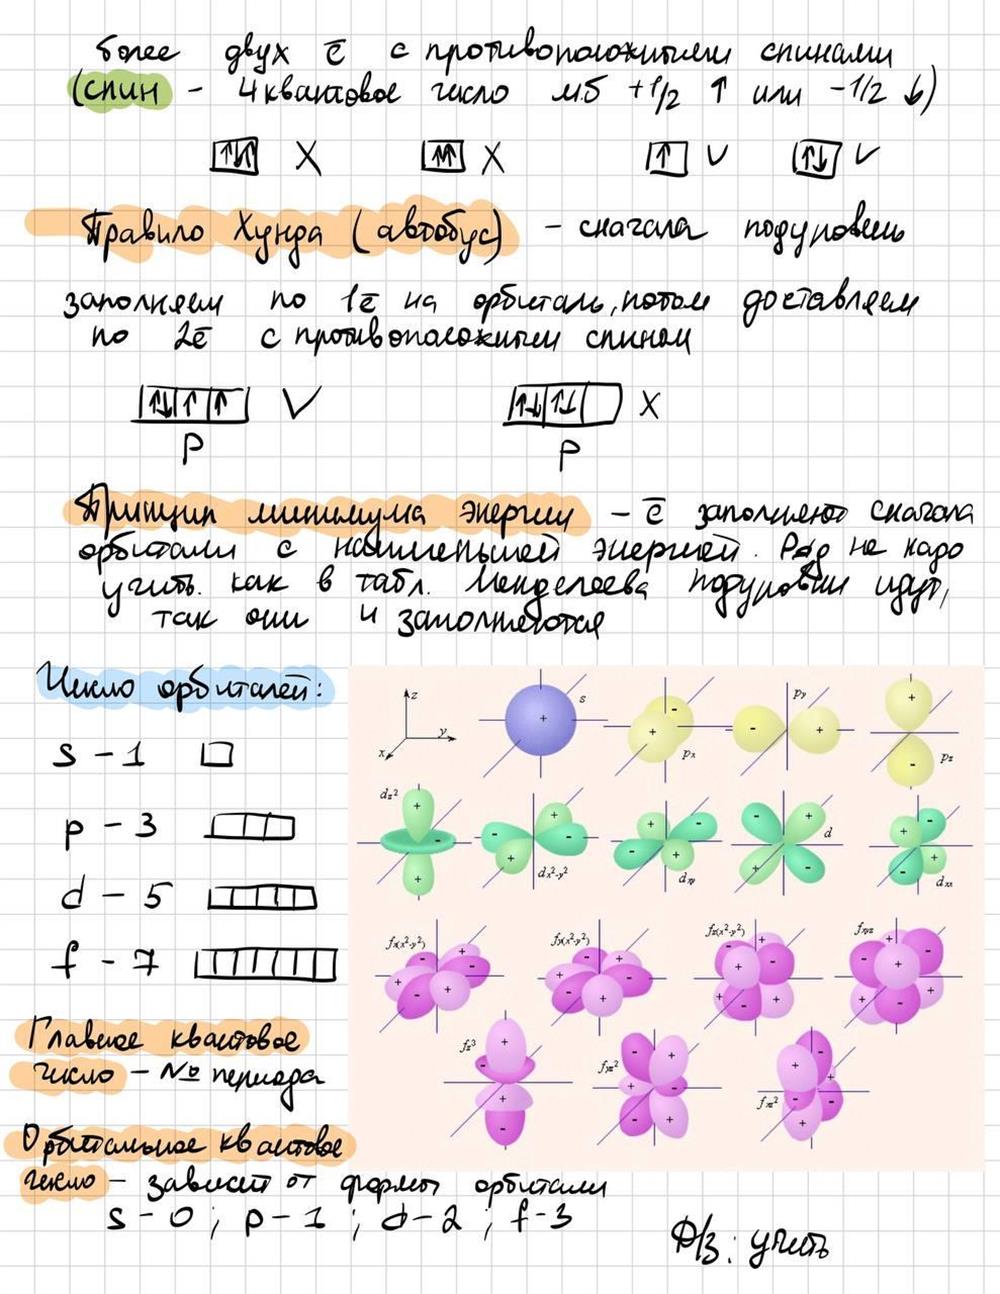 более двух e̅ с противоположными спинами
(спин - 4 квантовое число м.б +1/2 ↑ или -1/2 ↓)
X X V V
Правило Хунда (автобус) - сначала подуровень
заполняем по 1e̅ на орбиталь, потом доставляем
по 2e̅ с противоположным спином
V X
p p
Принцип минимума энергии - e̅ заполняют сначала
орбитали с наименьшей энергией. Ряд не надо
учить. как в табл. Менделеева подуровни идут,
так они и заполняются
Число орбиталей:
s - 1
p - 3
d - 5
f - 7
z y x s + + - px - py + + - pz
dz² + - + + - + - dx²-y² + - + - dxy + - + - d + - + - dxz
fx(x²-y²) fy(x²-y²) fz(x²-y²) fxyz
fz³ fyz² fxz²
Главное квантовое
число - № периода
Орбитальное квантовое
число - зависит от формы орбитали
s - 0 ; p - 1 ; d - 2 ; f - 3
Д/з: учить